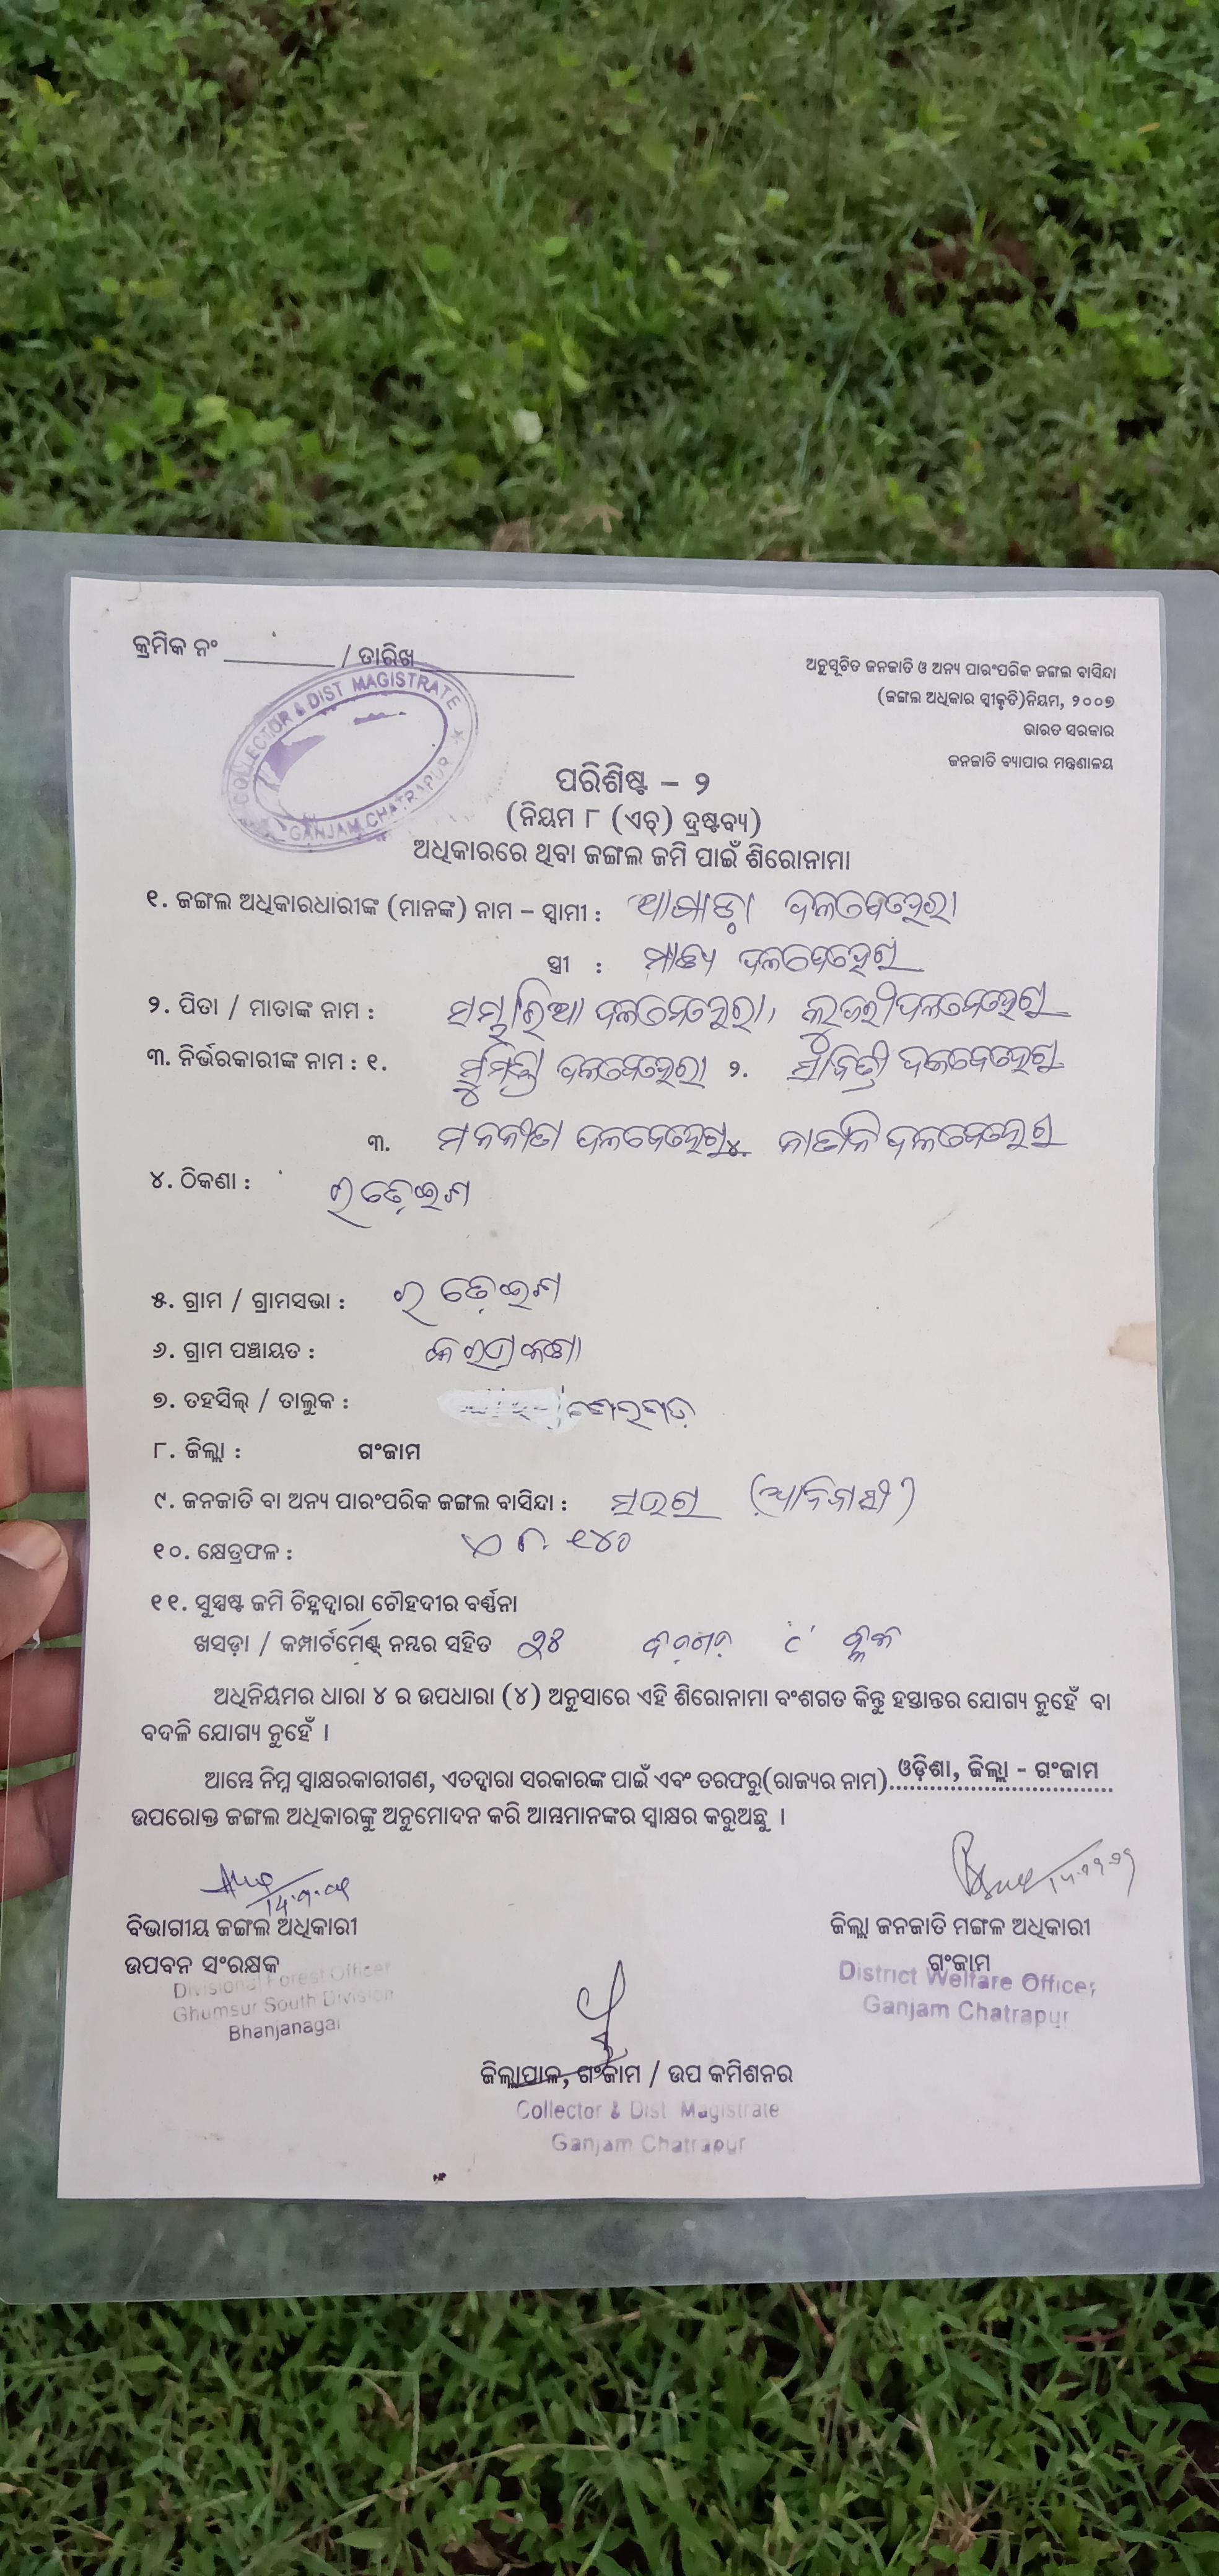 କ୍ରମିକ ନଂ / ତାରିଖ
ଅନୁସୂଚିତ ଜନଜାତି ଓ ଅନ୍ୟ ପାରଂପରିକ ଜଙ୍ଗଲ ବାସିନ୍ଦା
(ଜଙ୍ଗଲ ଅଧିକାର ସ୍ୱୀକୃତି)ନିୟମ, ୨୦୦୭
ଭାରତ ସରକାର
ଜନଜାତି ବ୍ୟାପାର ମନ୍ତ୍ରଣାଳୟ
COLLECTOR & DIST MAGISTRATE
GANJAM CHATRAPUR
ପରିଶିଷ୍ଟ – ୨
(ନିୟମ ୮ (ଏଚ୍) ଦ୍ରଷ୍ଟବ୍ୟ)
ଅଧିକାରରେ ଥିବା ଜଙ୍ଗଲ ଜମି ପାଇଁ ଶିରୋନାମା
୧. ଜଙ୍ଗଲ ଅଧିକାରଧାରୀଙ୍କ (ମାନଙ୍କ) ନାମ – ସ୍ୱାମୀ : ଦଳବେହେରା
ସ୍ତ୍ରୀ : ଦଳବେହେରା
୨. ପିତା / ମାତାଙ୍କ ନାମ : ଦଳବେହେରା, ଦଳବେହେରା
୩. ନିର୍ଭରକାରୀଙ୍କ ନାମ : ୧. ସୁମିତ୍ରା ଦଳବେହେରା ୨. ସାବିତ୍ରୀ ଦଳବେହେରା
୩. ଦଳବେହେରା ୪. ଦଳବେହେରା
୪. ଠିକଣା :
୫. ଗ୍ରାମ / ଗ୍ରାମସଭା :
୬. ଗ୍ରାମ ପଞ୍ଚାୟତ :
୭. ତହସିଲ୍ / ତାଲୁକ :
୮. ଜିଲ୍ଲା : ଗଂଜାମ
୯. ଜନଜାତି ବା ଅନ୍ୟ ପାରଂପରିକ ଜଙ୍ଗଲ ବାସିନ୍ଦା : ସଉରା (ଆଦିବାସୀ)
୧୦. କ୍ଷେତ୍ରଫଳ :
୧୧. ସୁସ୍ପଷ୍ଟ ଜମି ଚିହ୍ନଦ୍ୱାରା ଚୌହଦୀର ବର୍ଣ୍ଣନା
ଖସଡ଼ା / କମ୍ପାର୍ଟମେଣ୍ଟ୍ ନମ୍ବର ସହିତ ବ୍ଲକ
ଅଧିନିୟମର ଧାରା ୪ ର ଉପଧାରା (୪) ଅନୁସାରେ ଏହି ଶିରୋନାମା ବଂଶଗତ କିନ୍ତୁ ହସ୍ତାନ୍ତର ଯୋଗ୍ୟ ନୁହେଁ ବା
ବଦଳି ଯୋଗ୍ୟ ନୁହେଁ ।
ଆମ୍ଭେ ନିମ୍ନ ସ୍ୱାକ୍ଷରକାରୀଗଣ, ଏତଦ୍ଵାରା ସରକାରଙ୍କ ପାଇଁ ଏବଂ ତରଫରୁ(ରାଜ୍ୟର ନାମ) ଓଡ଼ିଶା, ଜିଲ୍ଲା - ଗଂଜାମ
ଉପରୋକ୍ତ ଜଙ୍ଗଲ ଅଧିକାରଙ୍କୁ ଅନୁମୋଦନ କରି ଆମ୍ଭମାନଙ୍କର ସ୍ୱାକ୍ଷର କରୁଅଛୁ ।
ବିଭାଗୀୟ ଜଙ୍ଗଲ ଅଧିକାରୀ
ଉପବନ ସଂରକ୍ଷକ
Divisional Forest Officer
Ghumsur South Division
Bhanjanagar
ଜିଲ୍ଲା ଜନଜାତି ମଙ୍ଗଳ ଅଧିକାରୀ
ଗଂଜାମ
District Welfare Officer
Ganjam Chatrapur
ଜିଲ୍ଲାପାଳ, ଗଂଜାମ / ଉପ କମିଶନର
Collector & Dist Magistrate
Ganjam Chatrapur